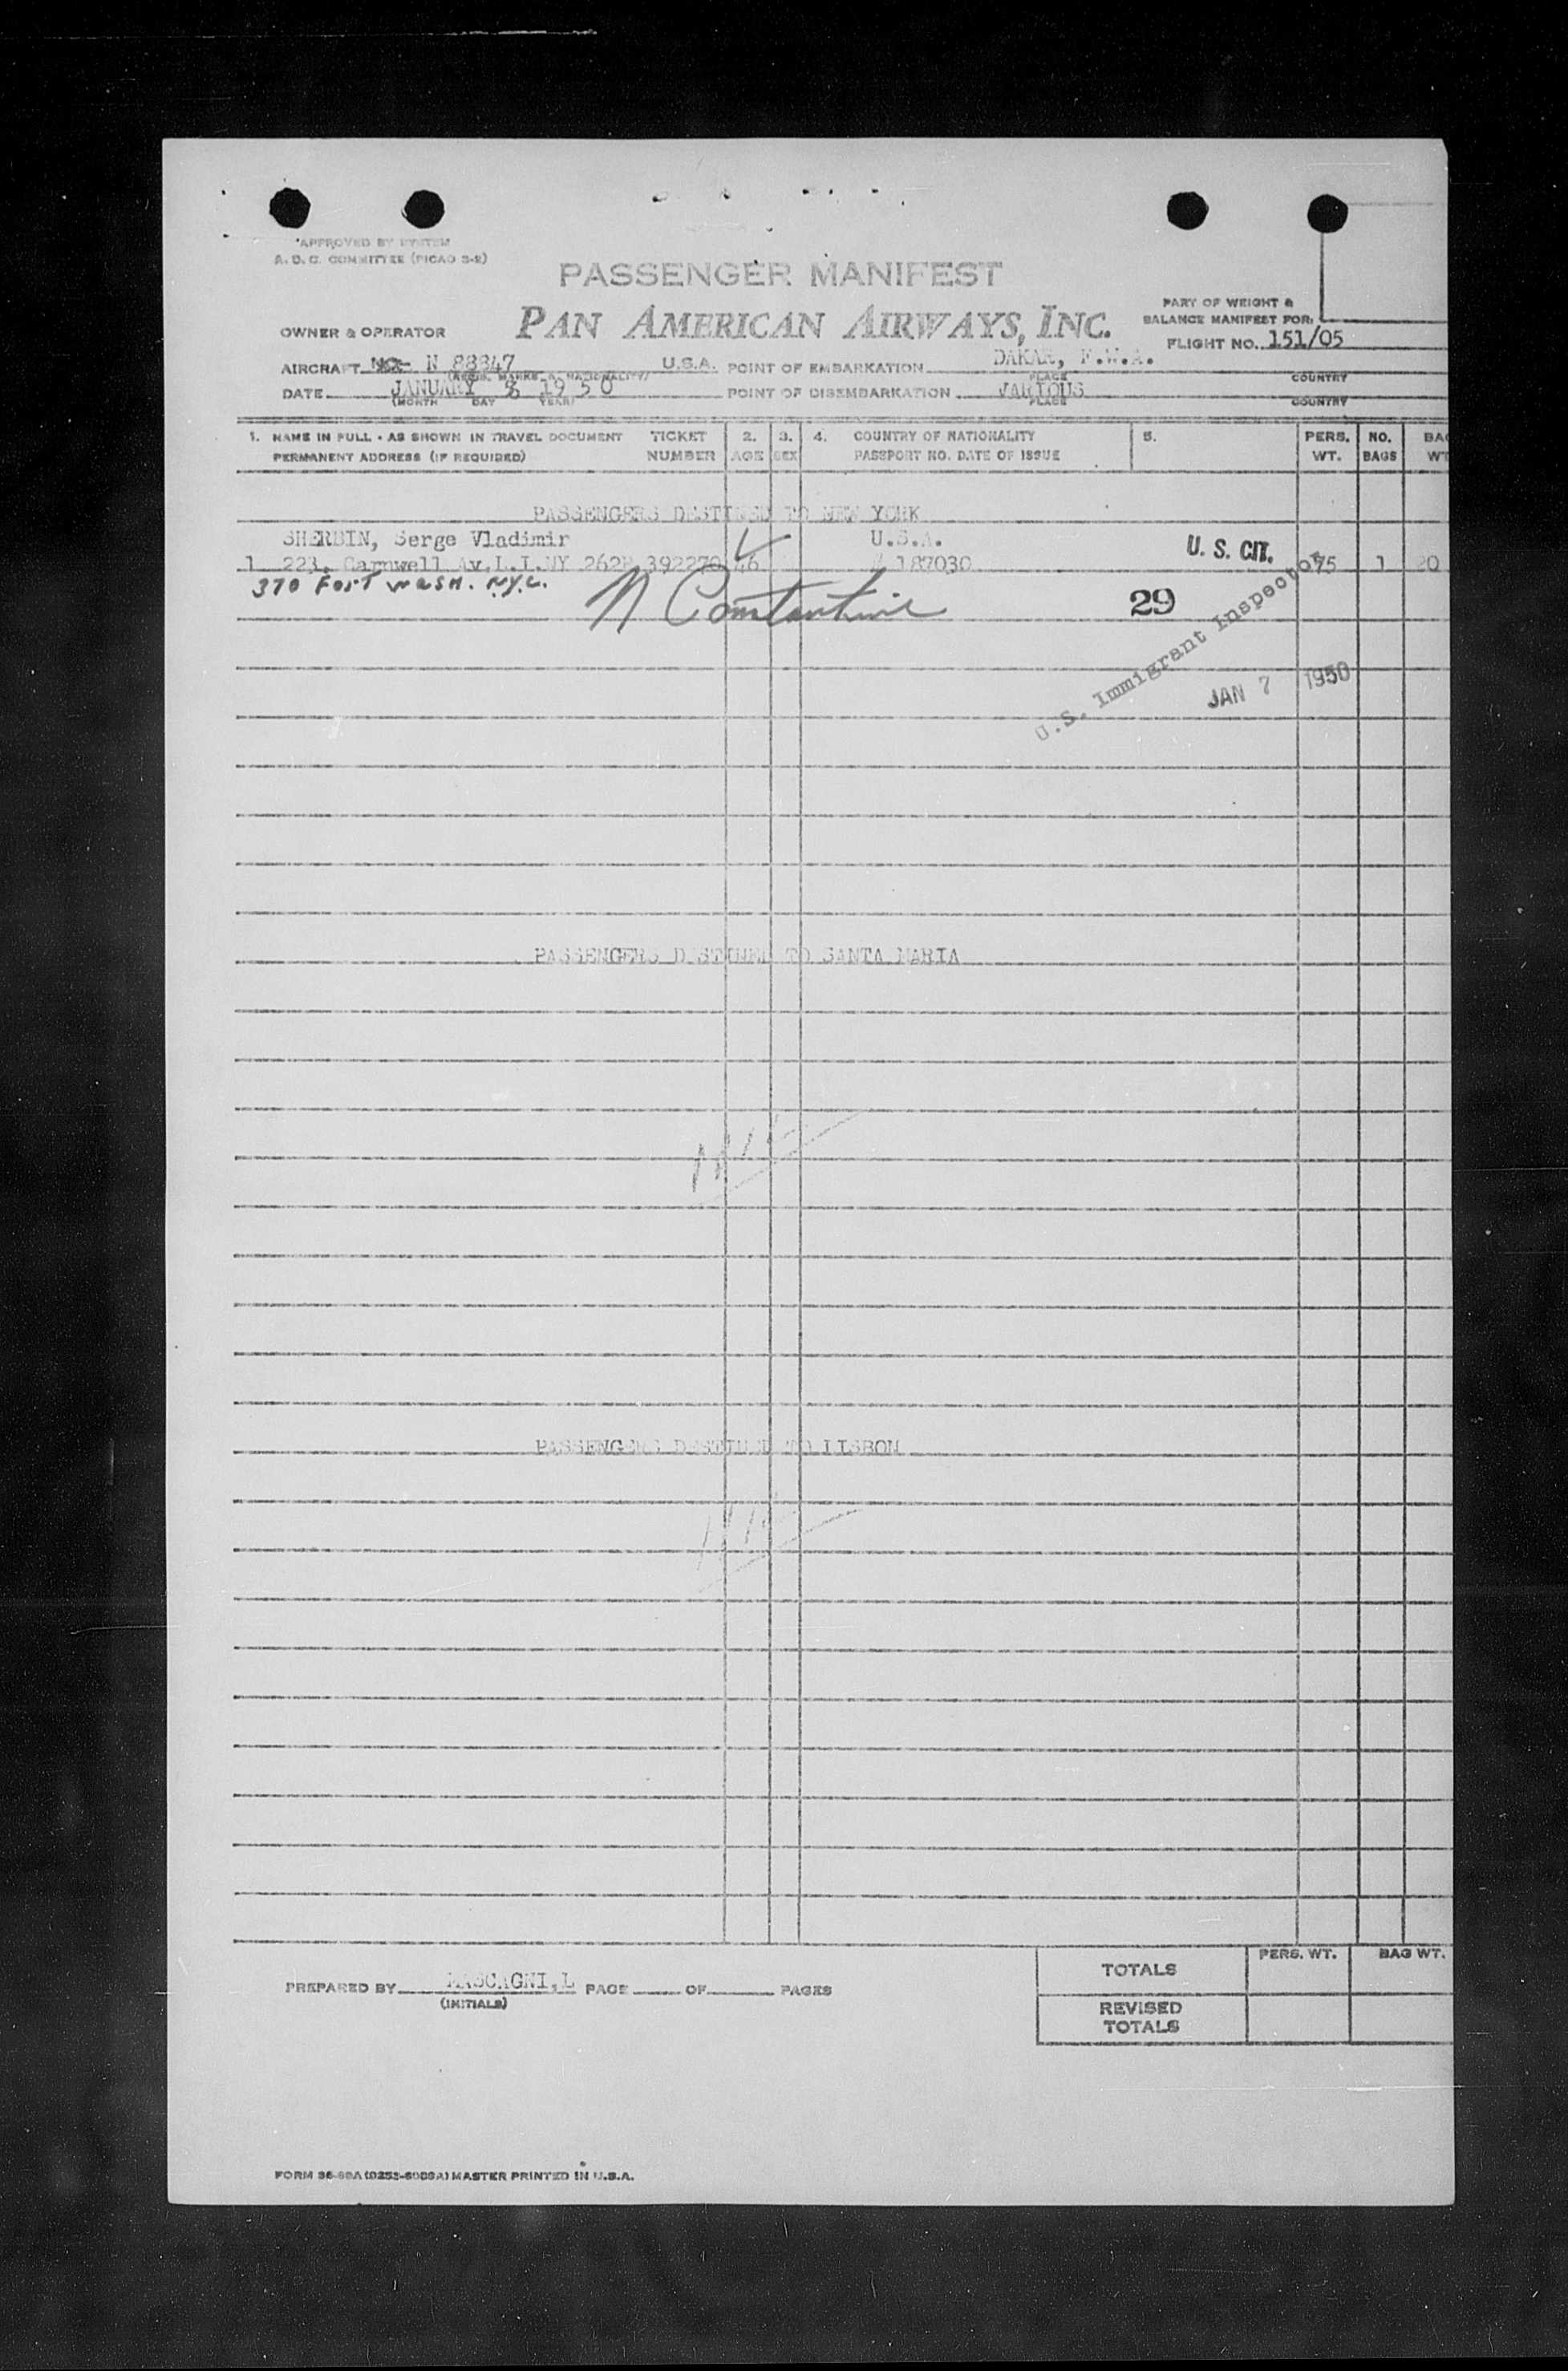 APPROVED BY SYSTEM
A. O. C. COMMITTEE (PICAO S-2)
PASSENGER MANIFEST
PAN AMERICAN AIRWAYS, INC.
PART OF WEIGHT &
BALANCE MANIFEST FOR:
OWNER & OPERATOR
FLIGHT NO. 151/05
AIRCRAFT NC N 88847 U.S.A. POINT OF EMBARKATION DAKAR, F.W.A.
(REGIS. MARKS & NATIONALITY) PLACE COUNTRY
DATE JANUARY 1950 POINT OF DISEMBARKATION VARIOUS
(MONTH DAY YEAR) PLACE COUNTRY
1. NAME IN FULL - AS SHOWN IN TRAVEL DOCUMENT TICKET 2. 3. 4. COUNTRY OF NATIONALITY 5. PERS. NO. BAG
PERMANENT ADDRESS (IF REQUIRED) NUMBER AGE SEX PASSPORT NO. DATE OF ISSUE WT. BAGS WT
PASSENGERS DESTINED TO NEW YORK
SHERBIN, Serge Vladimir U.S.A. U. S. CIT.
1 223, Carnwell Av.L.I.NY 262P 392270 46 # 187030 75 1 20
370 Fort Wash. NYC.
N Constantine 29
U.S. Immigrant Inspector
JAN 7 1950
PASSENGERS DESTINED TO SANTA MARIA
NIL
PASSENGERS DESTINED TO LISBON
NIL
PREPARED BY MASCAGNI, L PAGE OF PAGES
(INITIALS)
TOTALS PERS. WT. BAG WT.
REVISED
TOTALS
FORM MASTER PRINTED IN U.S.A.